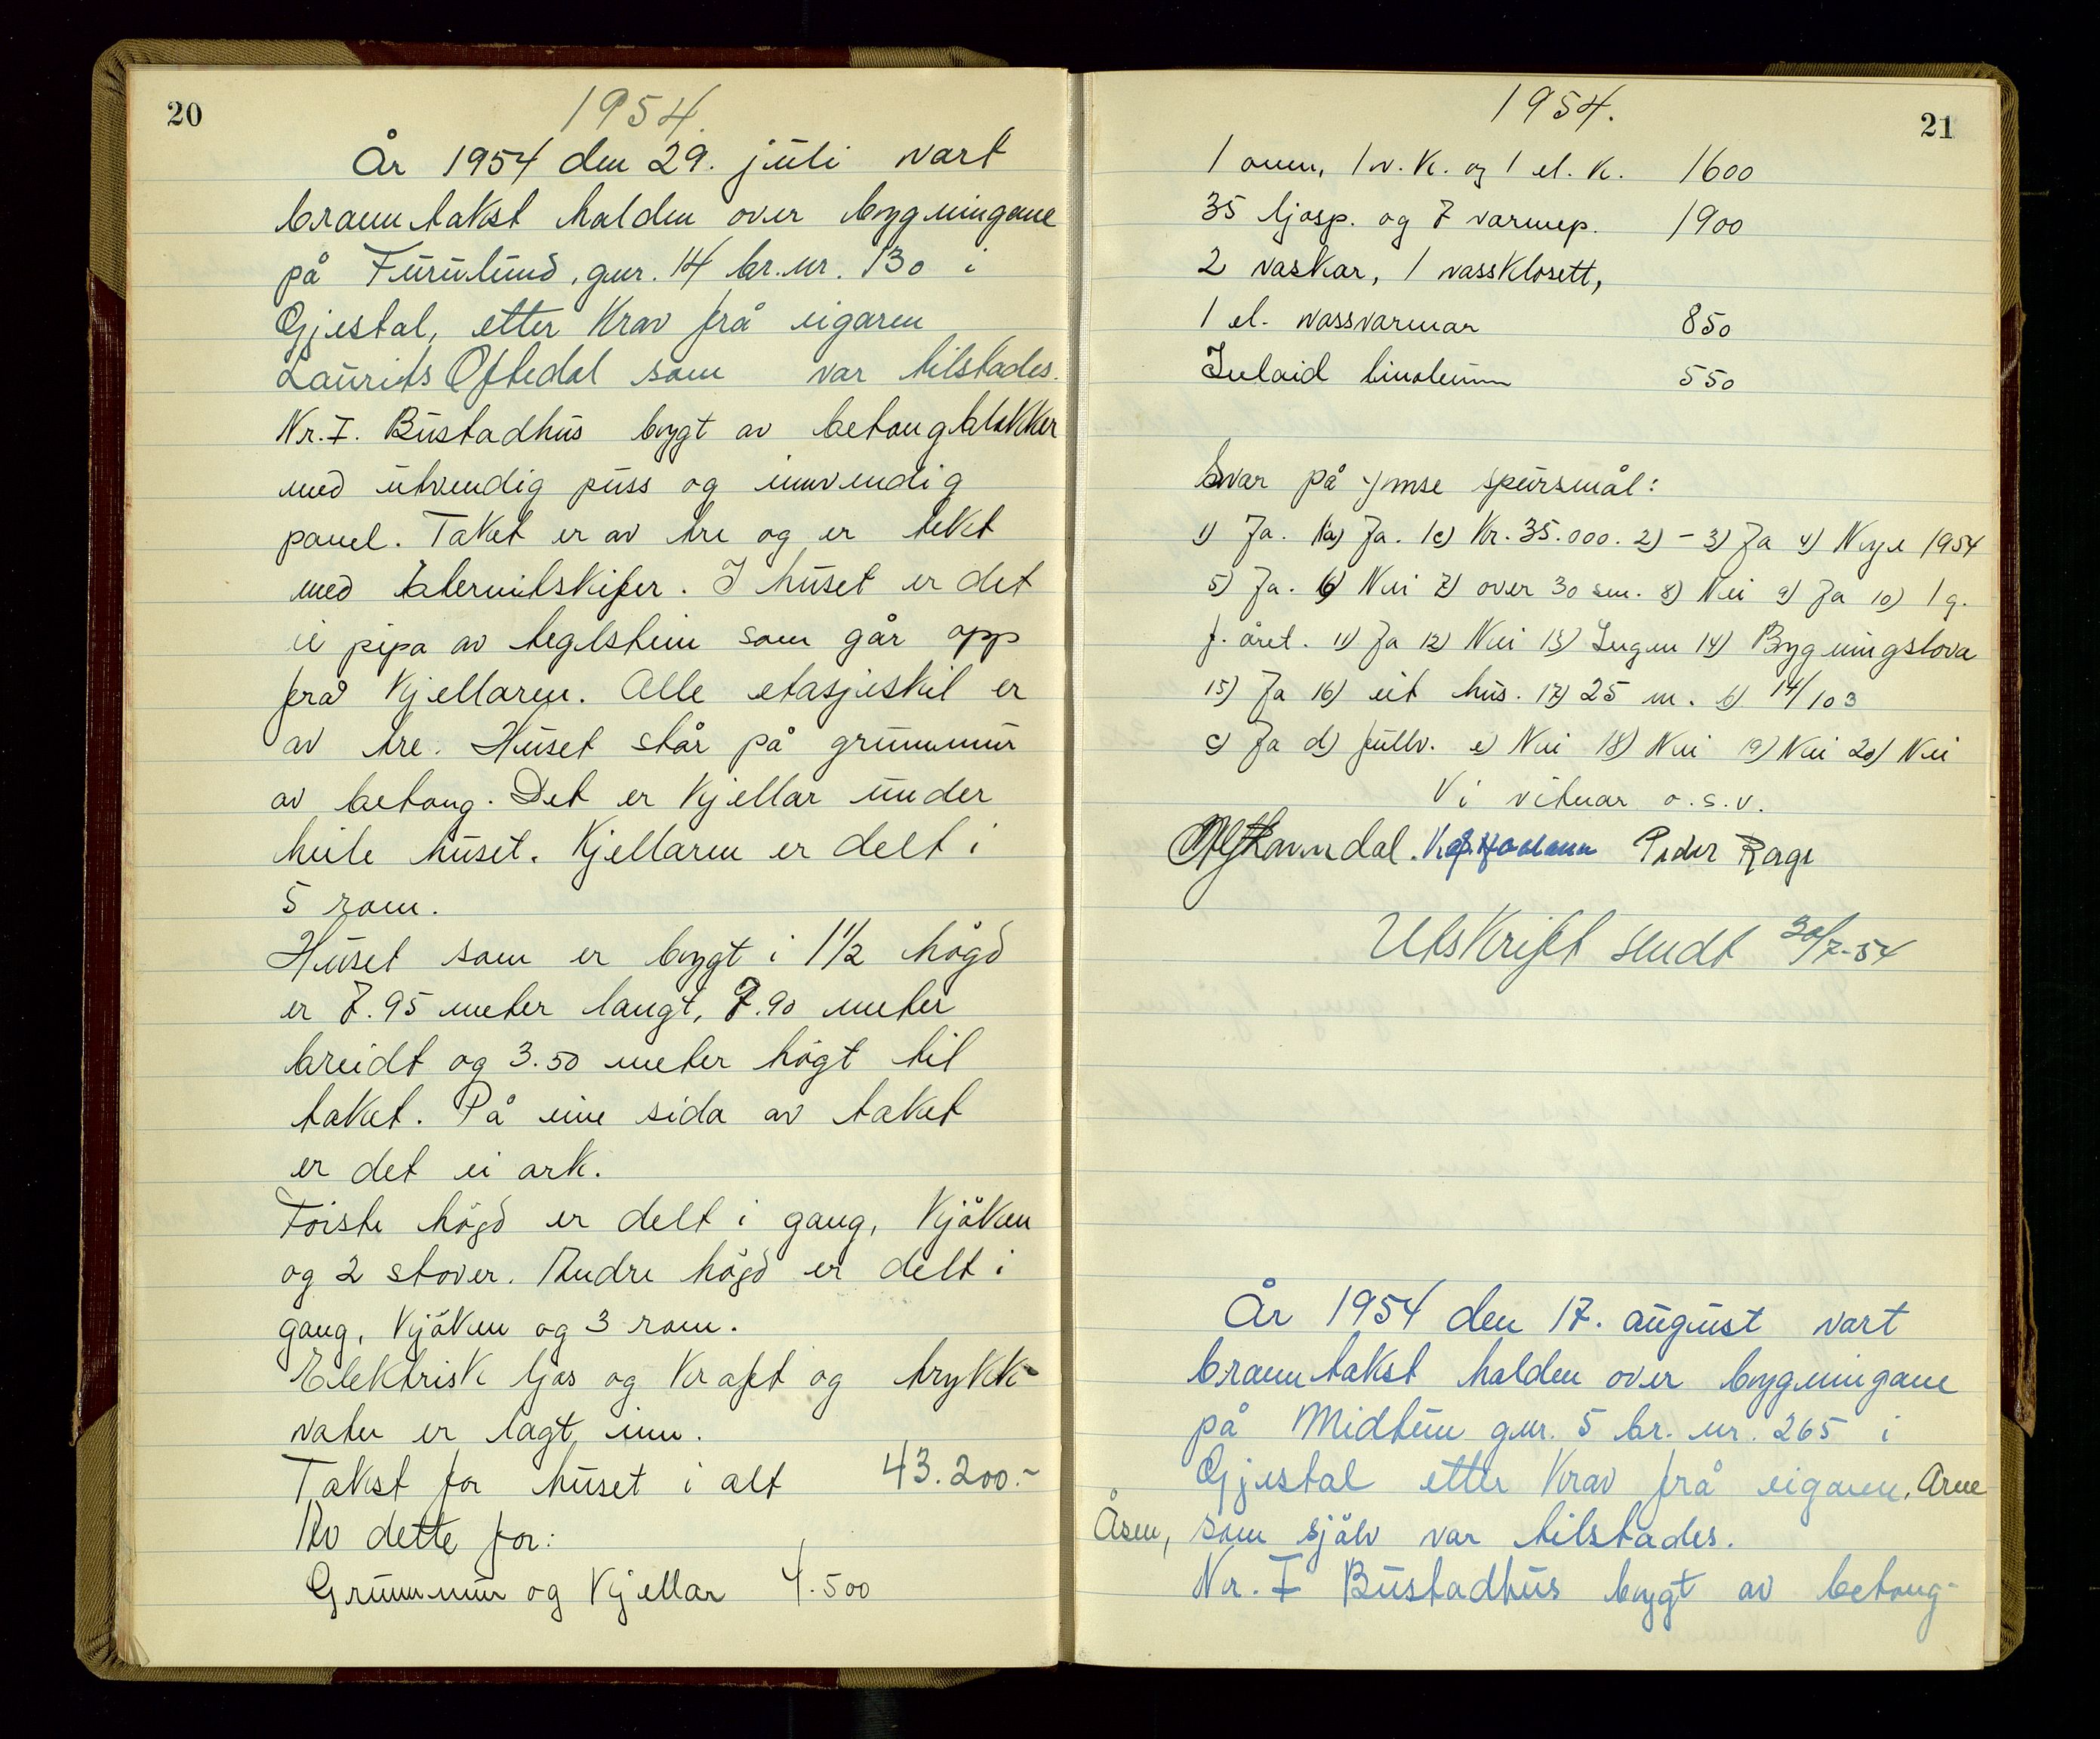 20
1954.
År 1954 den 29. juli vart
branntakst halden over bygningane
på Furulund, gnr. 14 br.nr. 130 i
Gjestal, etter krav frå eigaren
Laurits Oftedal som var tilstades.
Nr. I. Bustadhus bygt av betongblokker
med utvendig puss og innvendig
panel. Taket er av tre og er tekt
med eternitskifer. I huset er det
ei pipa av teglstein som går opp
frå kjellaren. Alle etasjeskil er
av tre. Huset står på grunnmur
av betong. Det er kjellar under
heile huset. Kjellaren er delt i
5 rom.
Huset som er bygt i 1½ högd
er 7.95 meter langt, 7.90 meter
breidt og 3.50 meter högt til
taket. På eine sida av taket
er det ei ark.
Förste högd er delt i gang, kjöken
og 2 stover. Andre högd er delt i
gang, kjöken og 3 rom.
Elektrisk ljos og kraft og trykk-
vatn er lagt inn.
Takst for huset i alt 43.200.-
Av dette for:
Grunnmur og kjellar 4.500
1954.
21
1 omn, 1 v.k. og 1 el. k. 1600
35 ljosp. og 7 varmep. 1900
2 vaskar, 1 vassklosett,
1 el. vassvarmar 850
Inlaid linoleum 550
Svar på ymse spursmål:
1) Ja. 1a) Ja. 1c) Kr. 35.000. 2) - 3) Ja 4) Nye 1954
5) Ja. 6) Nei 7) over 30 sm. 8) Nei 9) Ja 10) 1 g.
f. året. 11) Ja 12) Nei 13) Ingen 14) Bygningslova
15) Ja 16) eit hus. 17) 25 m. b) 14/103
c) Ja d) fullv. e) Nei 18) Nei 19) Nei 20) Nei
Vi vitnar o.s.v.
Peder Rage
Utskrift sendt 30/7-54
År 1954 den 17. august vart
branntakst halden over bygningane
på Midtun gnr. 5 br. nr. 265 i
Gjestal etter krav frå eigaren, Arne
Åsen, som sjölv var tilstades.
Nr. I Bustadhus bygt av betong-